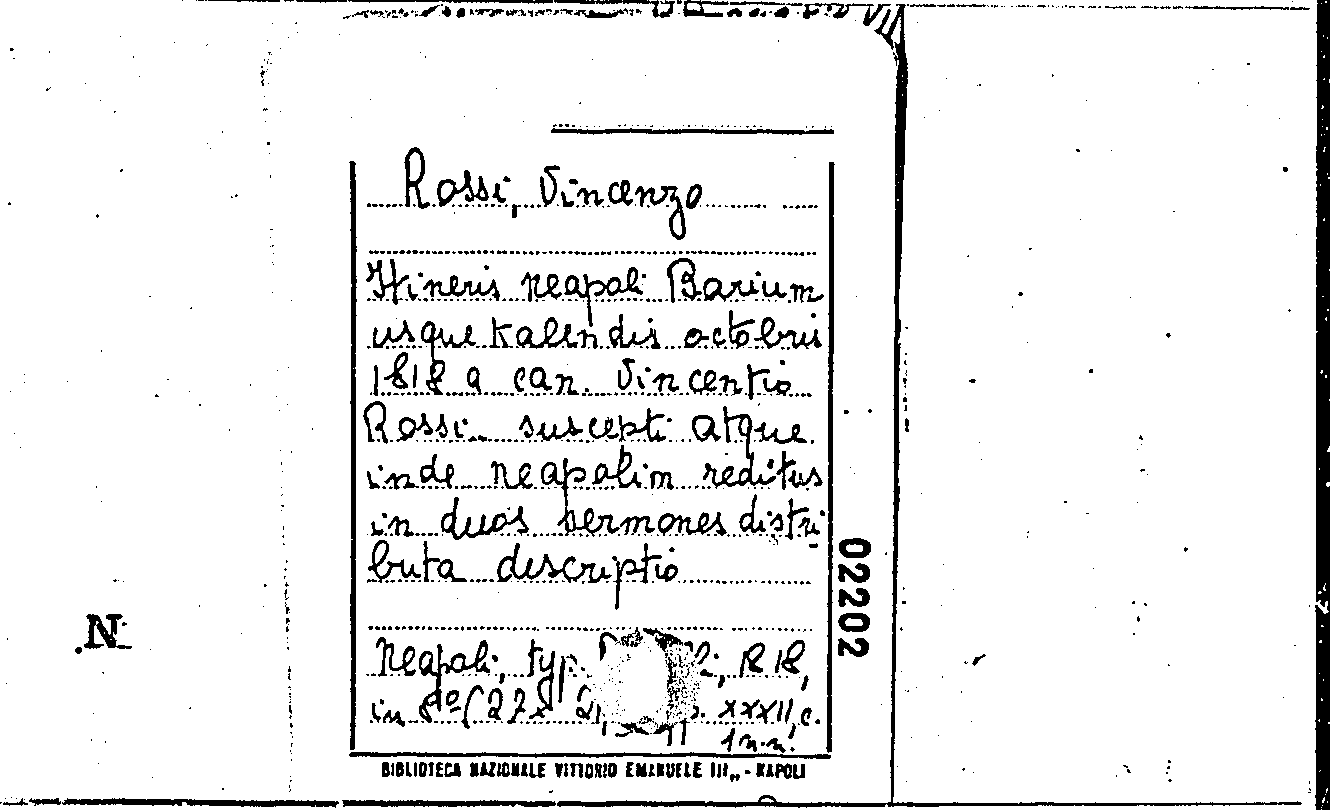 Rossi, Vincenzo
Itineris Neapoli Barium
usque Kalendis octobris
1818 a can. Vincentio
Rossi.. suscepti atque
inde Neapolim reditus
in duos sermones distri
buta descriptio
Neapoli, typ. 1818,
in 8º (27x XXXII, c.
1 n.n.
BIBLIOTECA NAZIONALE VITTORIO EMANUELE III,, - NAPOLI
02202
N